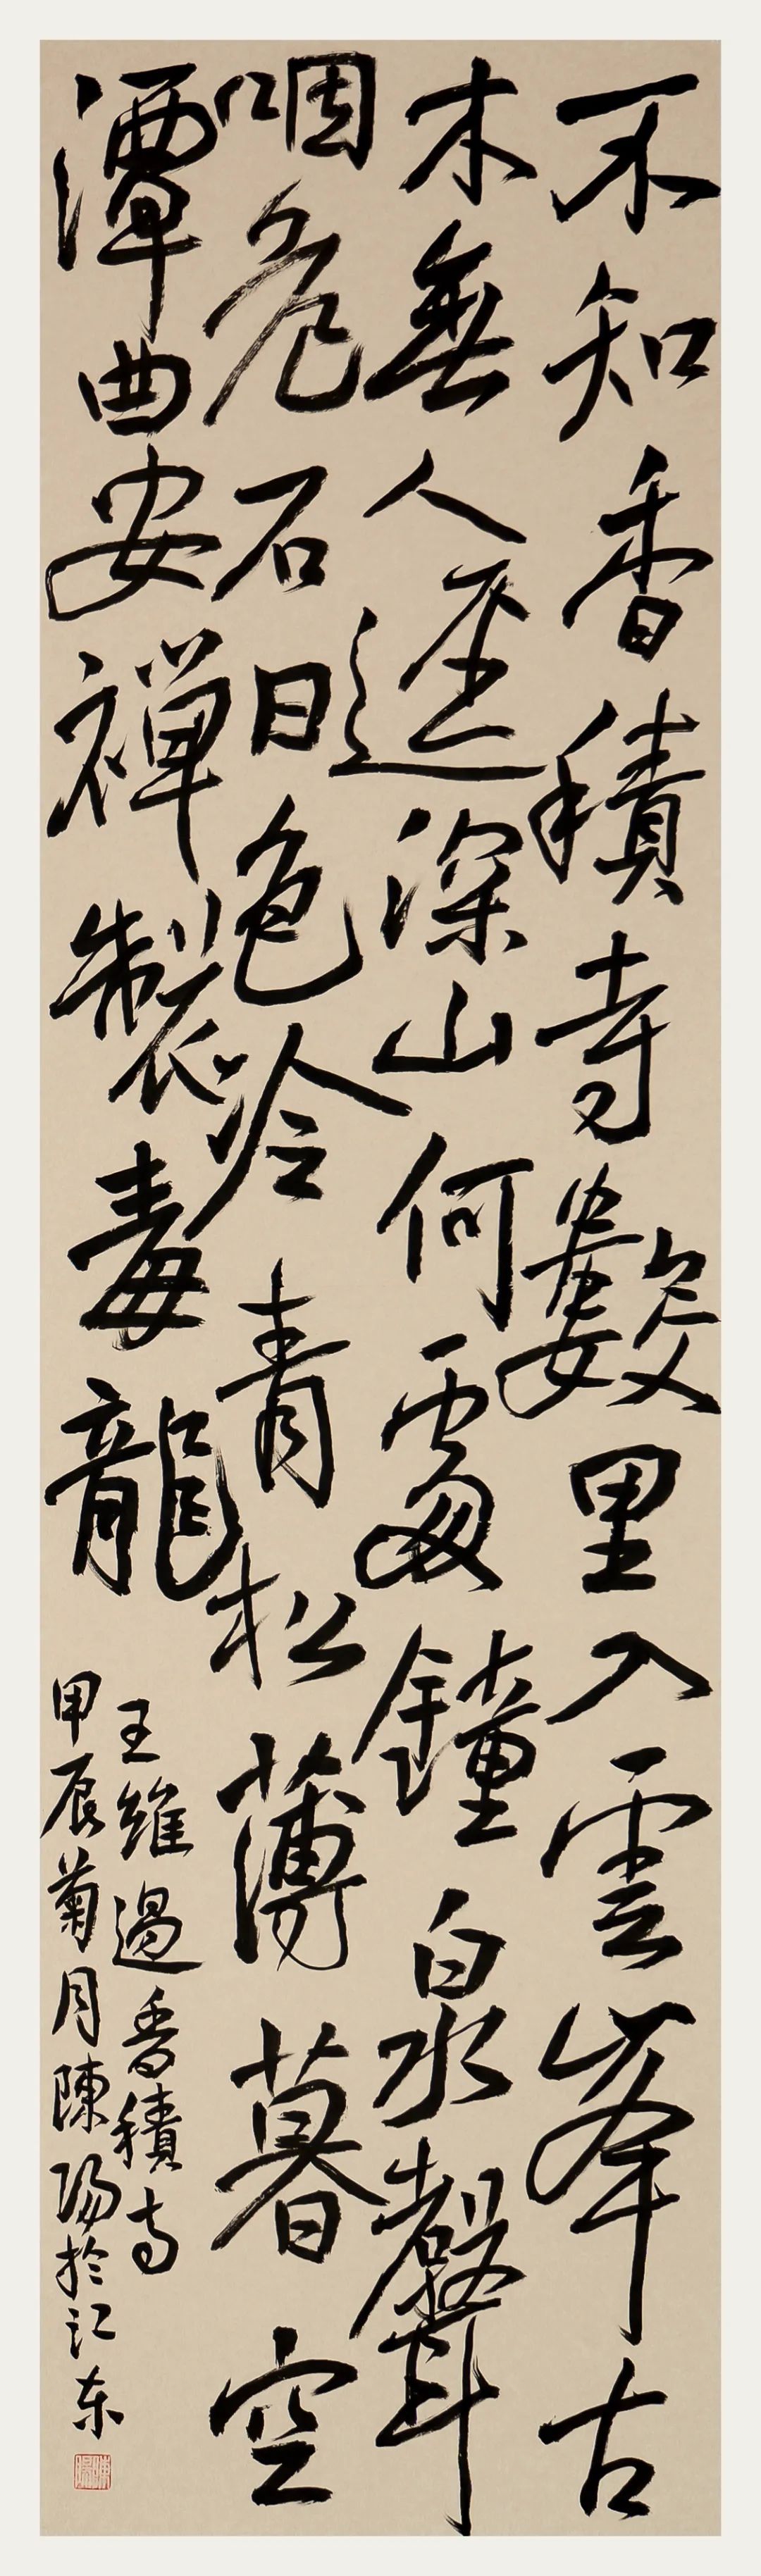 不知香積寺數里入雲峯古
木無人逕深山何處鐘泉聲
咽危石日色冷青松薄暮空
潭曲安禪製毒龍
王維過香積寺
甲辰菊月陳陽於江东